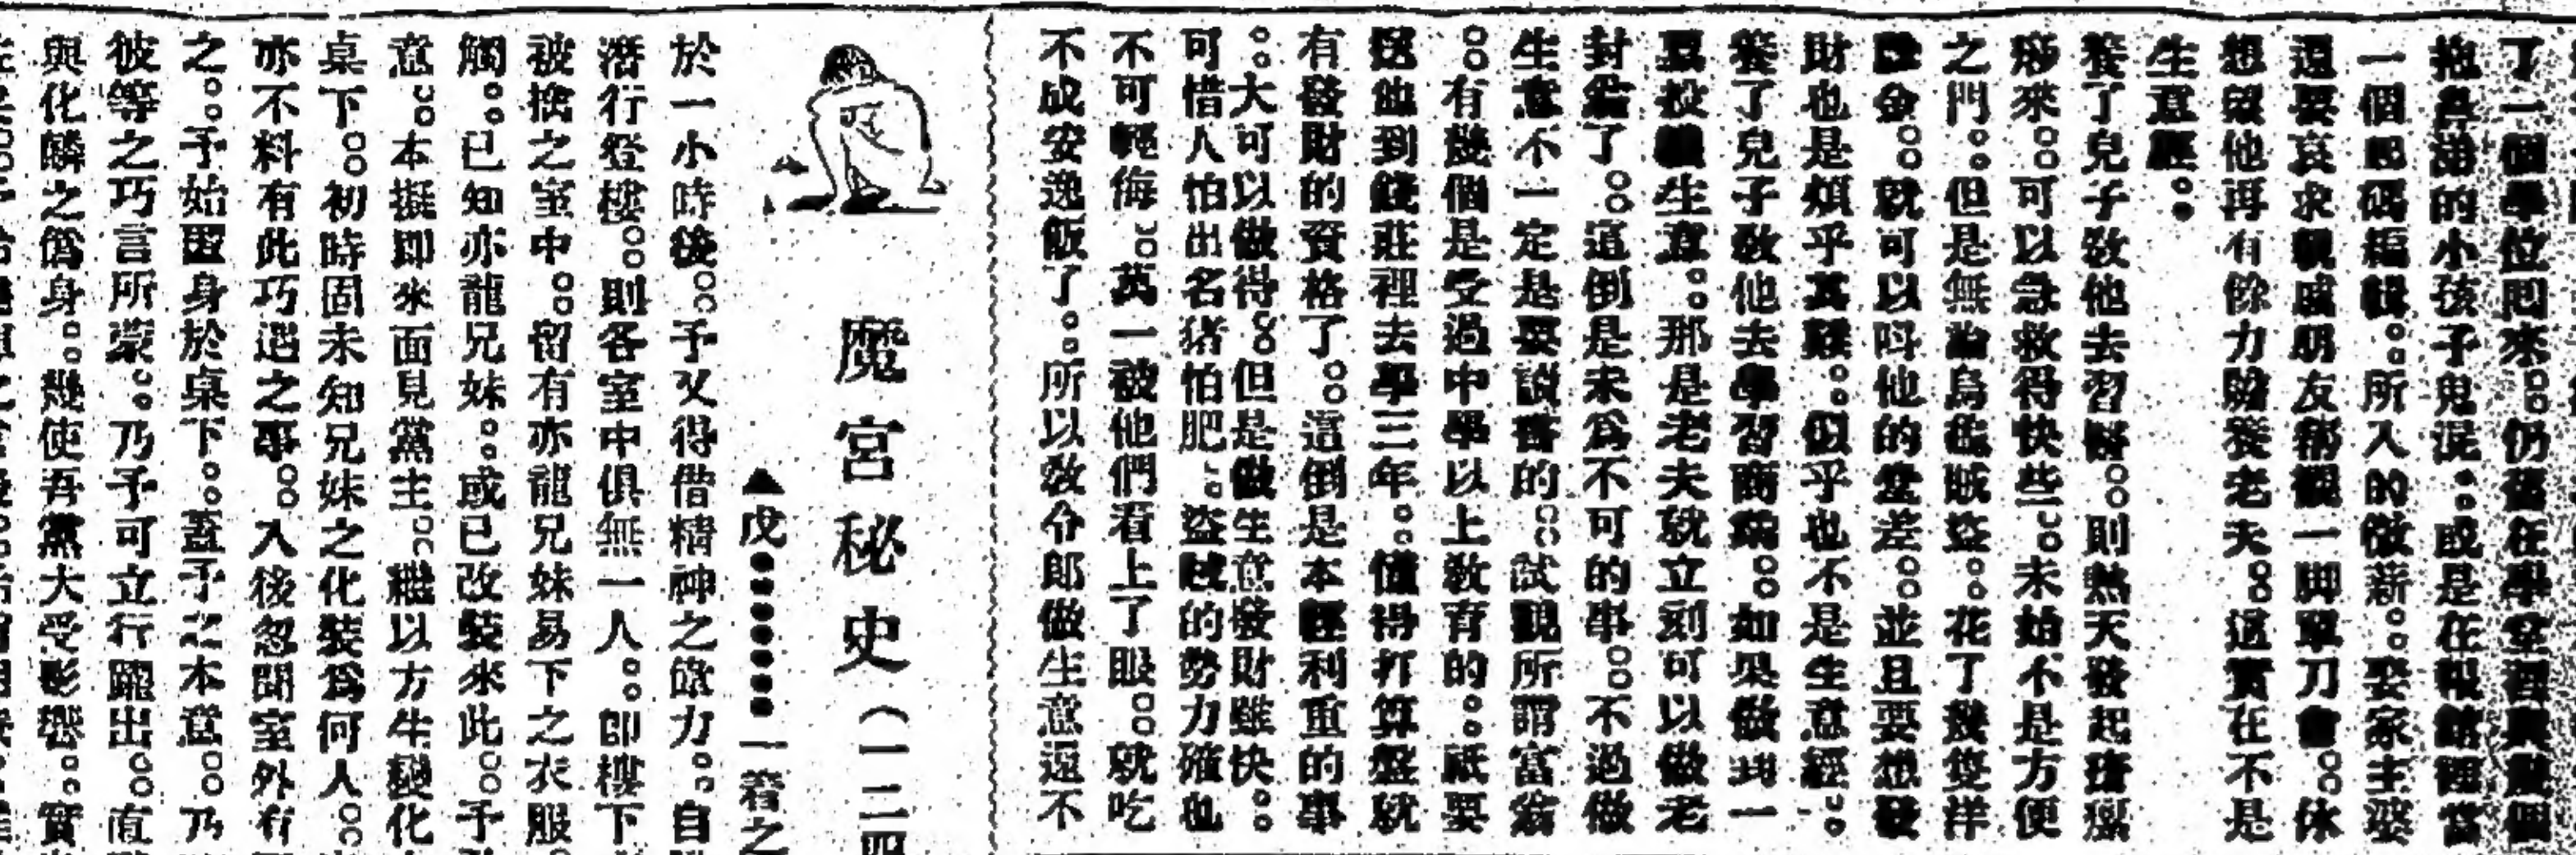 了一個學位囘來。。仍舊在學堂裡與幾個
拖鼻涕的小孩子鬼混。。或是在報館裡當
一個起碼編輯。。所入的微薪。。娶家主婆
還要哀求親戚朋友稱觀一脚單刀會。。休
想望他再有餘力贍養老夫。。這實在不是
生意經。。
養了兒子敎他去習醫。。則熱天發起痧癟
痧來。。可以急救得快些。。未始不是方便
之門。。但是無論烏龜賊盜。。花了幾隻洋
金。。就可以呌他的當差。。並且要想發
財也是煩乎其難。。似乎也不是生意經。。
養了兒子敎他去學習商業。。如果做到一
票投機生意。。那是老夫就立刻可以做老
封翁了。。這倒是未爲不可的事。。不過做
生意不一定是要讀書的。。試觀所謂富翁
。。有幾個是受過中學以上敎育的。。祇要
送他到錢莊裡去學三年。。懂得打算盤就
有發財的資格了。。這倒是本輕利重的事
。。大可以做得。。但是做生意發財雖快。。
可惜人怕出名猪怕肥。。盜賊的勢力確也
不可輕侮。。萬一被他們看上了眼。。就吃
不成安逸飯了。。所以敎令郎做生意還不
魔宮秘史（一二四
▲戊●●●●●●一着之
於一小時後。。予乂得借精神之飮力。。自
潛行登樓。。則各室中俱無一人。。卽樓下
被擒之室中。。留有亦龍兄妹易下之衣服
觸。。已知亦龍兄妹。。或已改裝來此。。予
意。。本擬卽來面見黨主。。繼以方生變化
桌下。。初時固未知兄妹之化裝爲何人。。
亦不料有此巧遇之事。。入後忽聞室外有
之。。予始匿身於桌下。。蓋予之本意。。乃
彼等之巧言所蒙。。乃予可立行躍出。。直
與化麟之僞身。。幾使吾黨大受影響。。實